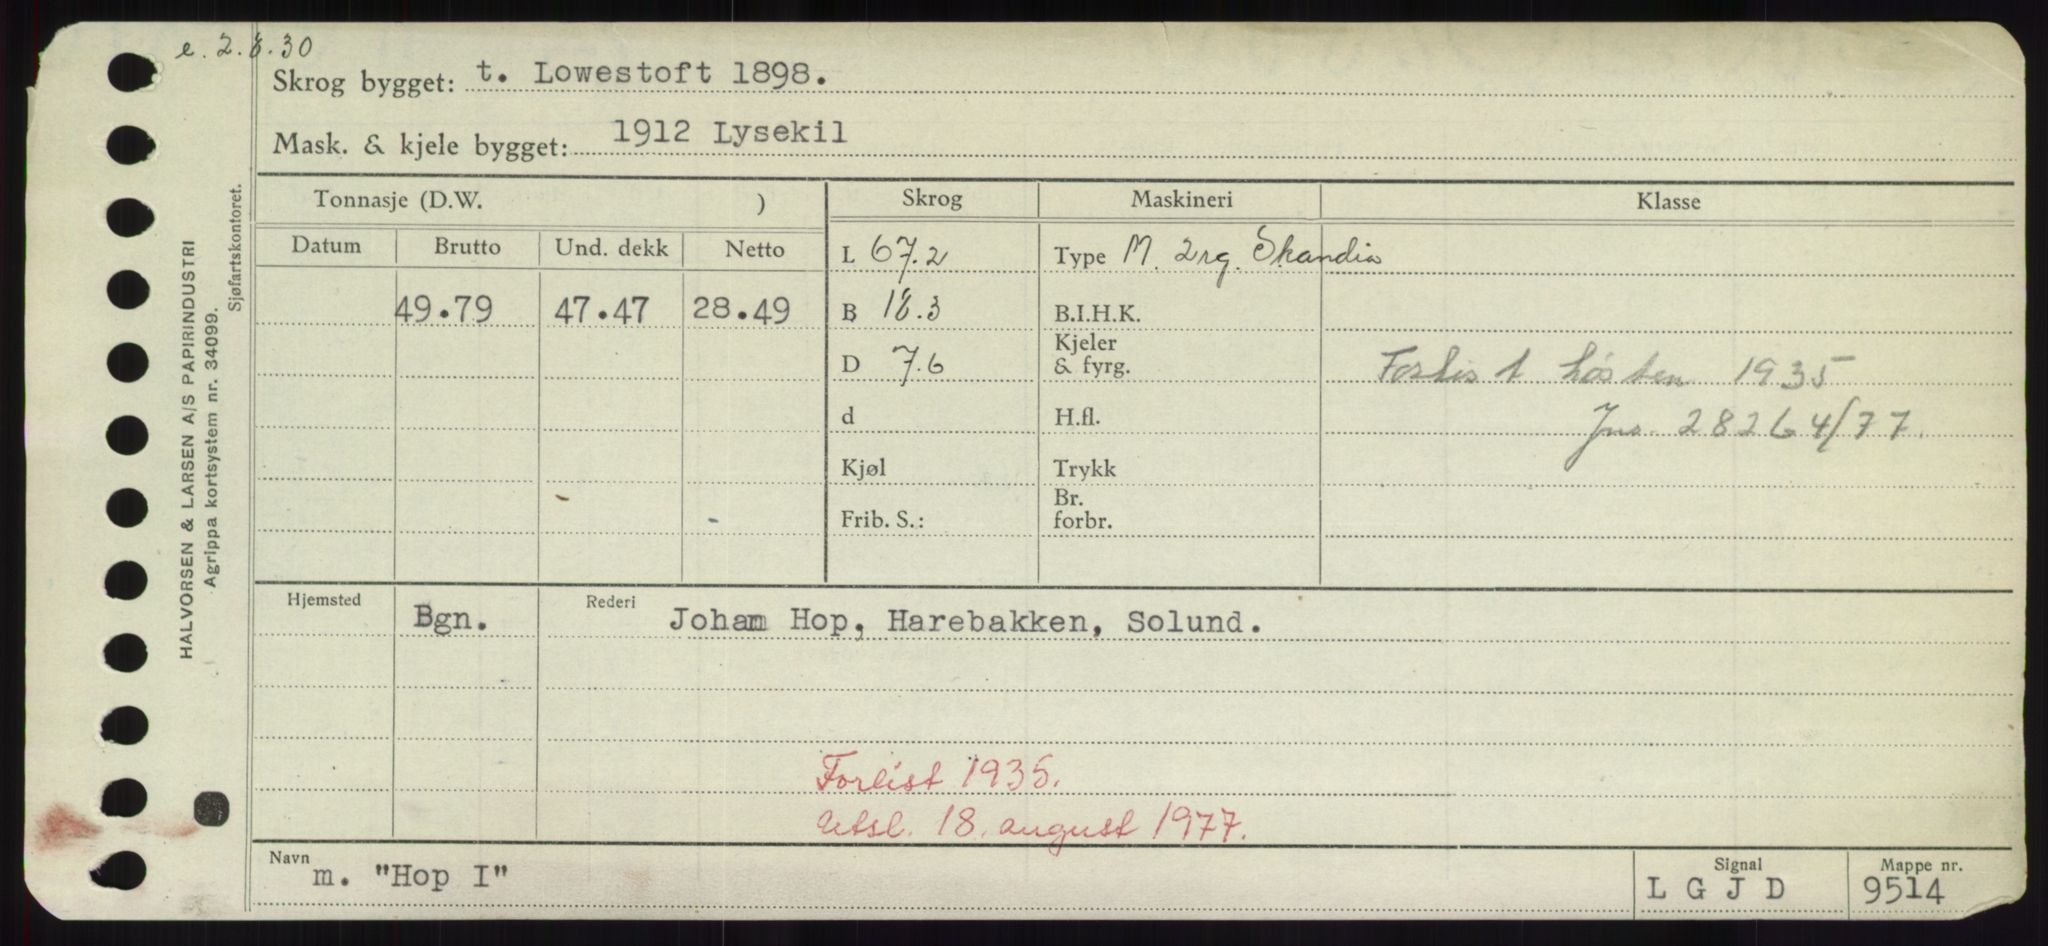 e. 2.8.30
Skrog bygget: t. Lowestoft 1898.
Mask. & kjele bygget: 1912 Lysekil
Tonnasje (D.W. ) Skrog Maskineri Klasse
Datum Brutto Und. dekk Netto L 67.2 Type M. 2rg. Skandia
49.79 47.47 28.49 B 18.3 B.I.H.K.
D 7.6 Kjeler & fyrg. Forlist høsten 1935
d H.fl. Jno. 28264/77.
Kjøl Trykk
Frib. S.: Br. forbr.
Hjemsted Bgn. Rederi Johan Hop, Harebakken, Solund.
Forlist 1935.
Utsl. 18. august 1977.
Navn m. "Hop I" Signal L G J D Mappe nr. 9514
HALVORSEN & LARSEN A/S PAPIRINDUSTRI
Agrippa kortsystem nr. 34099.
Sjøfartskontoret.